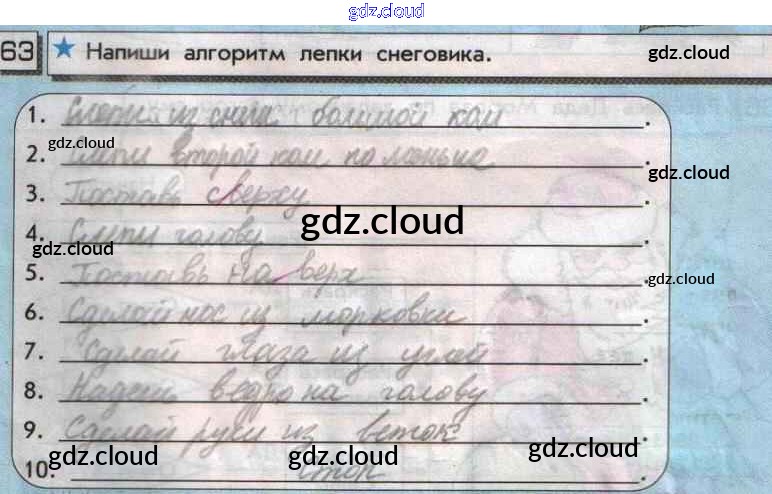 gdz.cloud
63 ★ Напиши алгоритм лепки снеговика. gdz.cloud
1. Слепи из снега большой ком.
gdz.cloud
2. Слепи второй ком по меньше.
gdz.cloud
3. Поставь сверху.
gdz.cloud
4. Слепи голову.
gdz.cloud
5. Поставь на верх.
gdz.cloud
6. Сделай нос из морковки.
7. Сделай глаза из углей.
8. Надень ведро на голову.
9. Сделай руки из веток.
gdz.cloud gdz.cloud gdz.cloud
10. стоп.